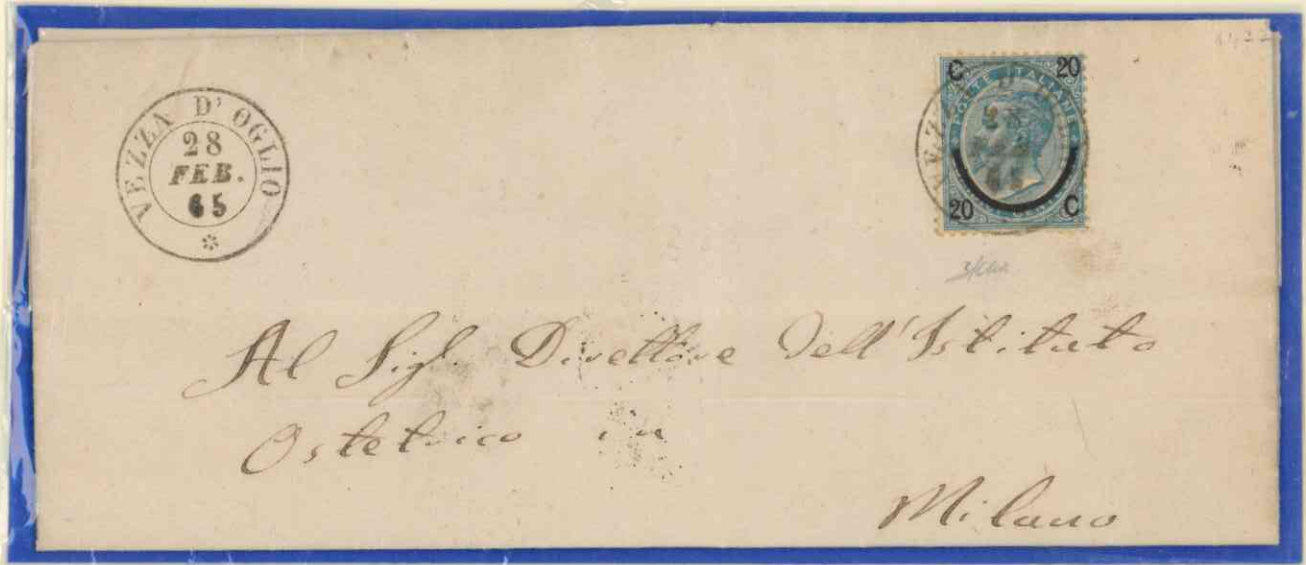 VEZZA D' OGLIO
28
FEB.
65
C 20
POSTE ITALIANE
20 C
VEZZA D' OGLIO
28
FEB.
65
Al Sigr. Direttore dell'Istituto
Ostetrico in
Milano